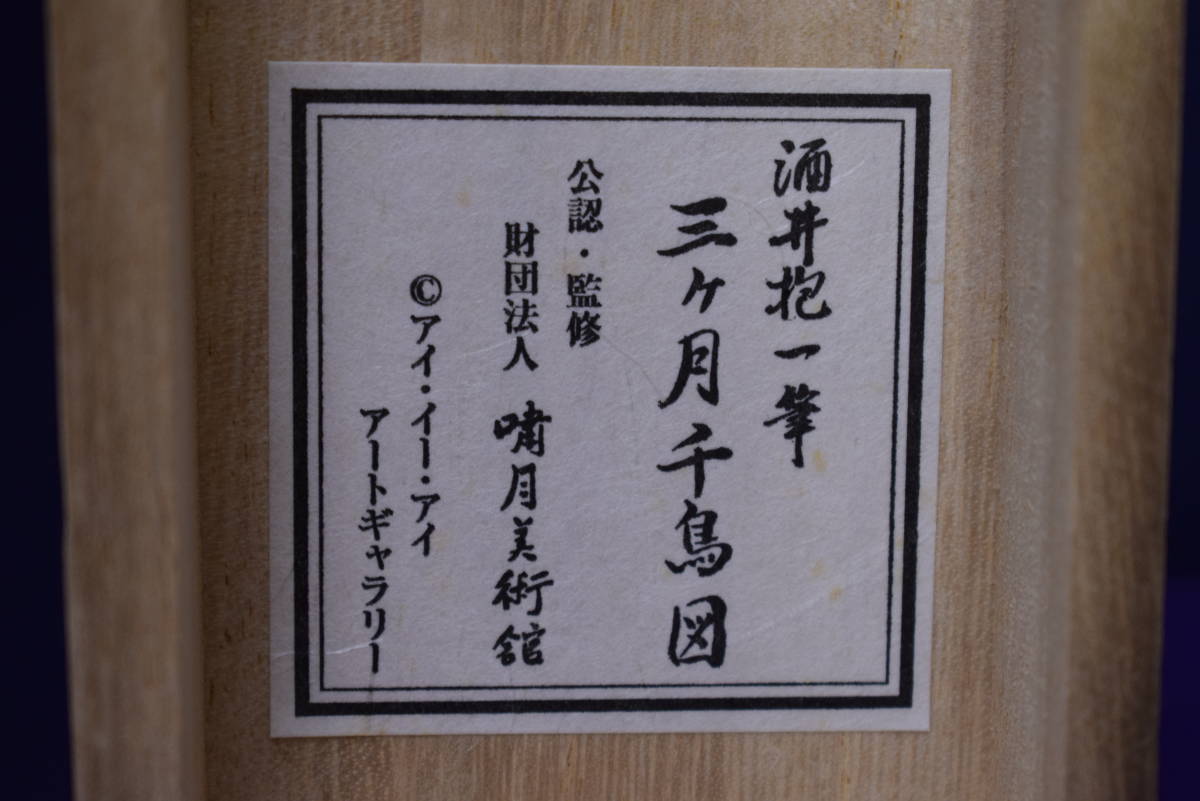 酒井抱一筆
三ヶ月千鳥図
公認・監修
財団法人 嘯月美術館
©アイ・イー・アイ
アートギャラリー